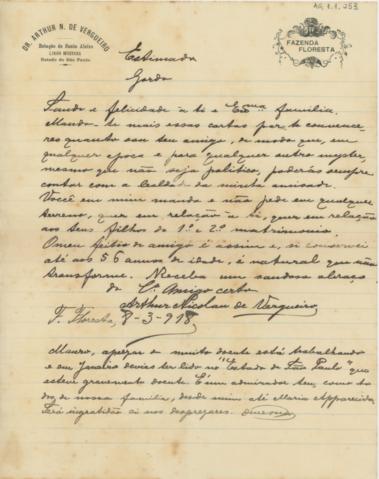 AG 1.1.253
DR. ARTHUR N. DE VERGUEIRO
Estação de Santa Aleixo
LINHA MOGYANA
Estado de São Paulo
FAZENDA
FLORESTA
Estimado
Gordo
Saude e felicidade a ti e Exma familia.
Mando-te mais essas cartas por te convence-
res quanto sou teu amigo, de modo que, em
qualquer epoca e para qualquer outro mister,
mesmo que não seja politico, poderás sempre
contar com a da minha amisade.
Você em mim manda e não pede em qualquer
terreno, quer em relação a si, quer em relação
aos seus filhos do 1º e 2º matrimonio.
O meu feitio de amigo é assim e, si conservei
até aos 56 annos de idade, é natural que não
transforme. Receba um saudoso abraço
do Cº Amigo certo
Arthur Nicolau de Vergueiro
F. Floresta, 8-3-918
Mauro, apezar de muito doente está trabalhando
e em Janeiro devias ter lido no "Estado de São Paulo" que
esteve gravemente doente. É um admirador teu, como to
dos de nossa familia, desde mim até Maria Apparecida
Será ingratidão si nos desprezares.